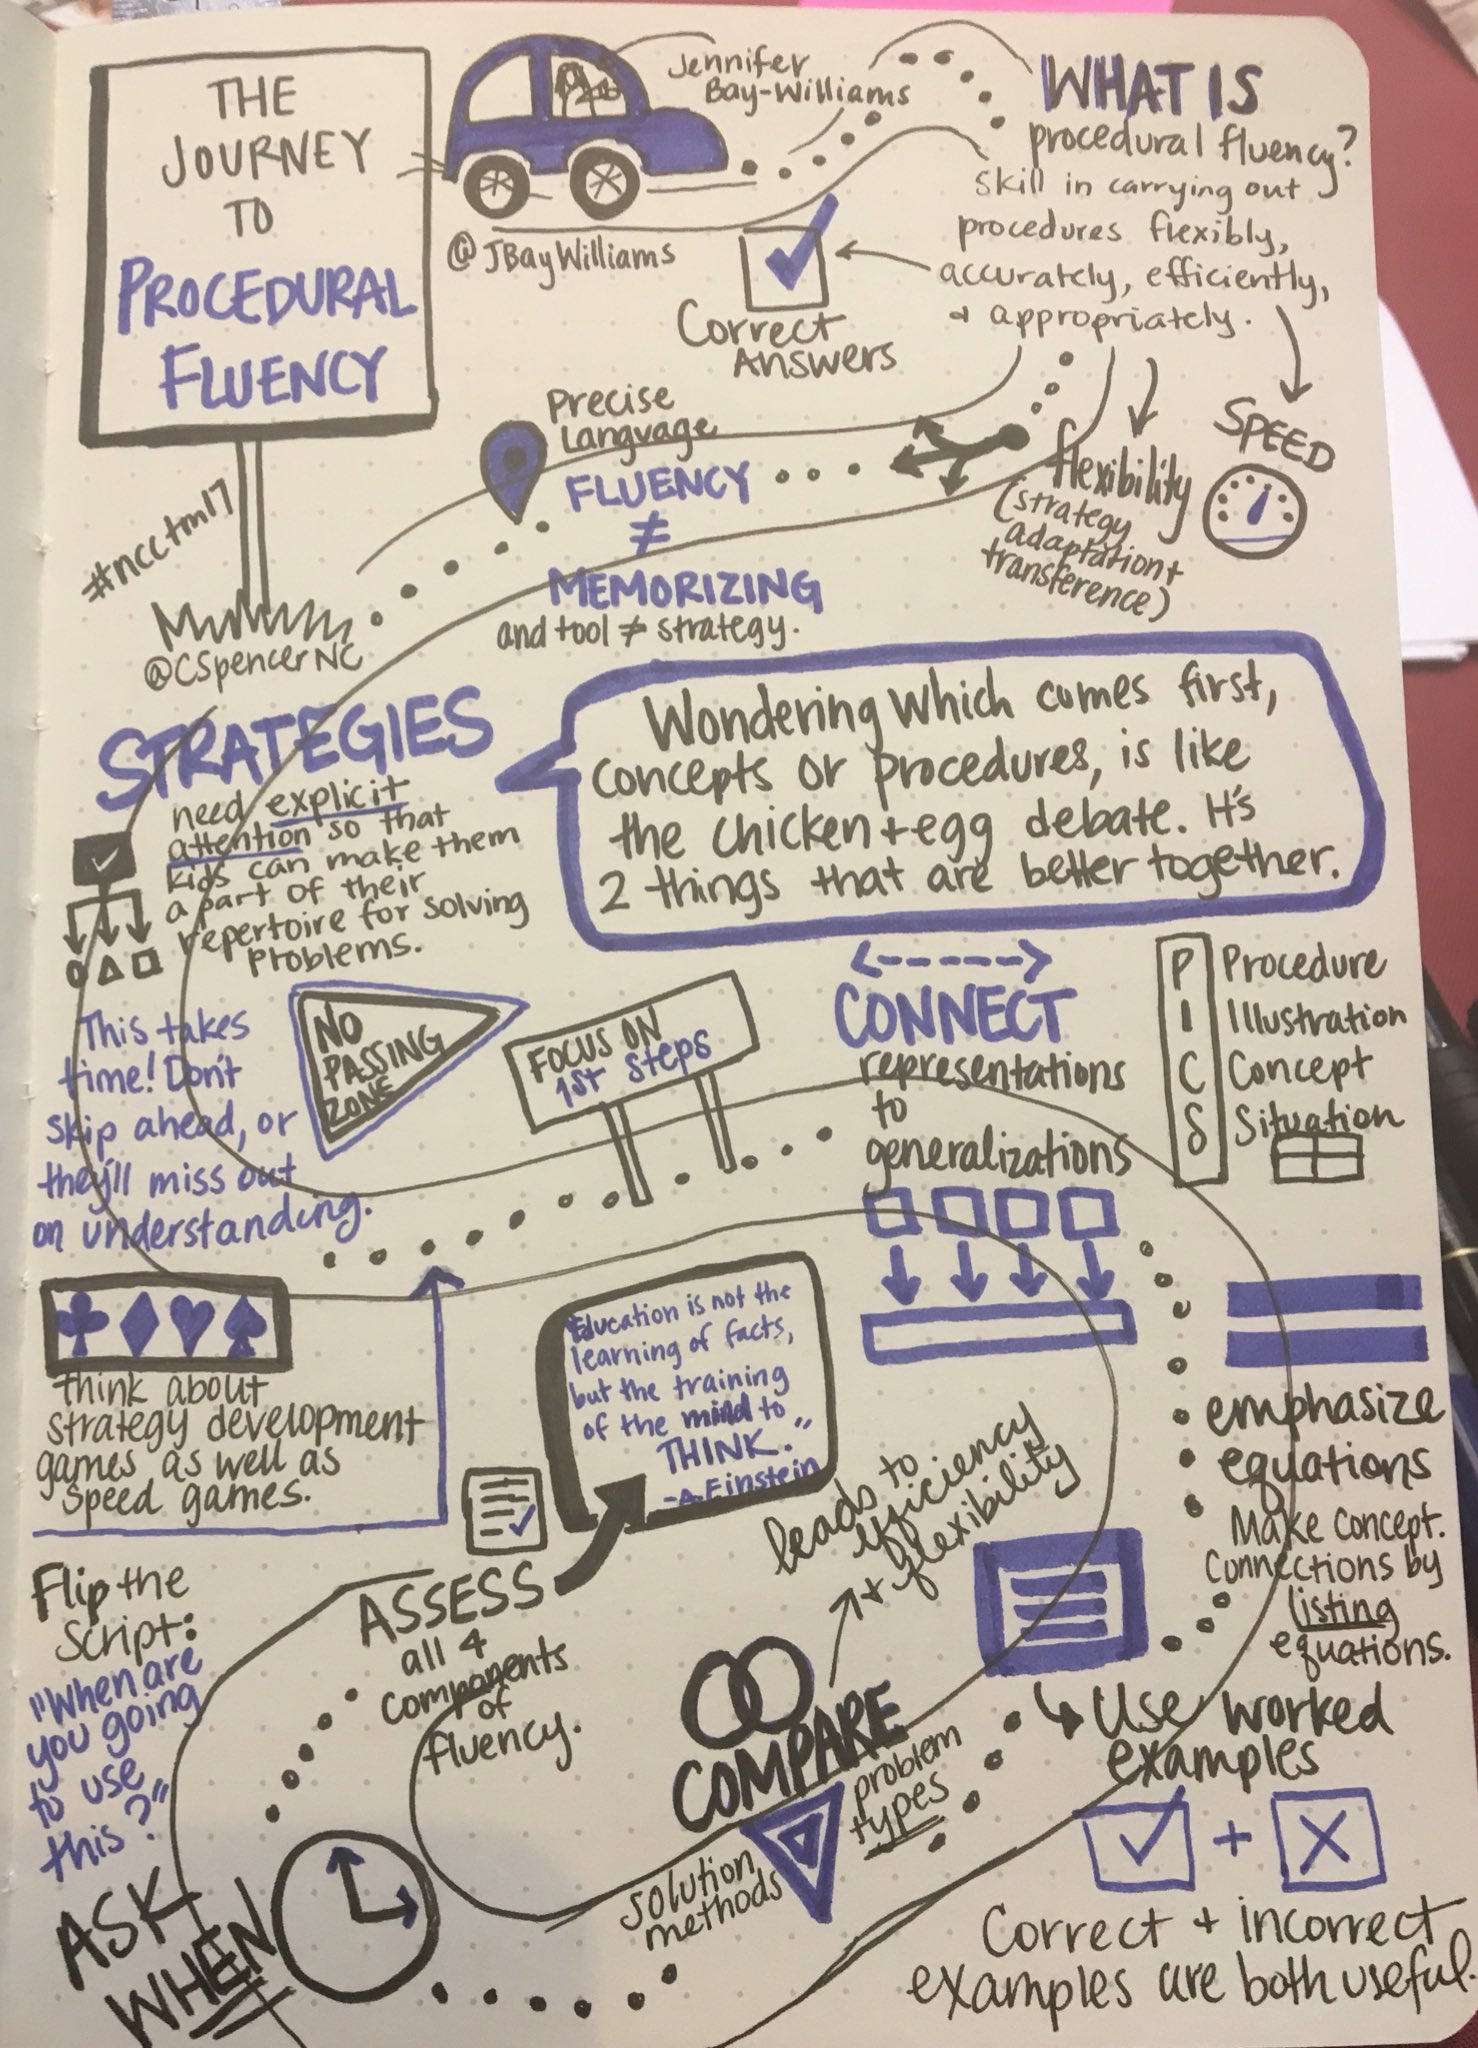 THE
JOURNEY
TO
PROCEDURAL
FLUENCY
#ncctm17
@CSpencerNC
Jennifer
Bay-Williams
@JBayWilliams
WHAT IS
procedural fluency?
skill in carrying out
procedures flexibly,
accurately, efficiently,
+ appropriately.
Correct
Answers
SPEED
flexibility
(strategy
adaptation +
transference)
Precise
Language
FLUENCY
≠
MEMORIZING
and tool ≠ strategy.
STRATEGIES
need explicit
attention so that
kids can make them
a part of their
repertoire for solving
problems.
Wondering which comes first,
concepts or procedures, is like
the chicken + egg debate. It's
2 things that are better together.
This takes
time! Don't
skip ahead, or
they'll miss out
on understanding.
NO
PASSING
ZONE
FOCUS ON
1st steps
CONNECT
representations
to
generalizations
P Procedure
I Illustration
C Concept
S Situation
think about
strategy development
games as well as
speed games.
Education is not the
learning of facts,
but the training
of the mind to
THINK."
-A. Einstein
emphasize
equations
Make concept.
connections by
listing
equations.
Use worked
examples
+
Correct + incorrect
examples are both useful.
leads to
efficiency
+ flexibility
COMPARE
problem
types
solution
methods
ASSESS
all 4
components
of
fluency.
Flip the
script:
"When are
you going
to use
this?"
ASK
WHEN